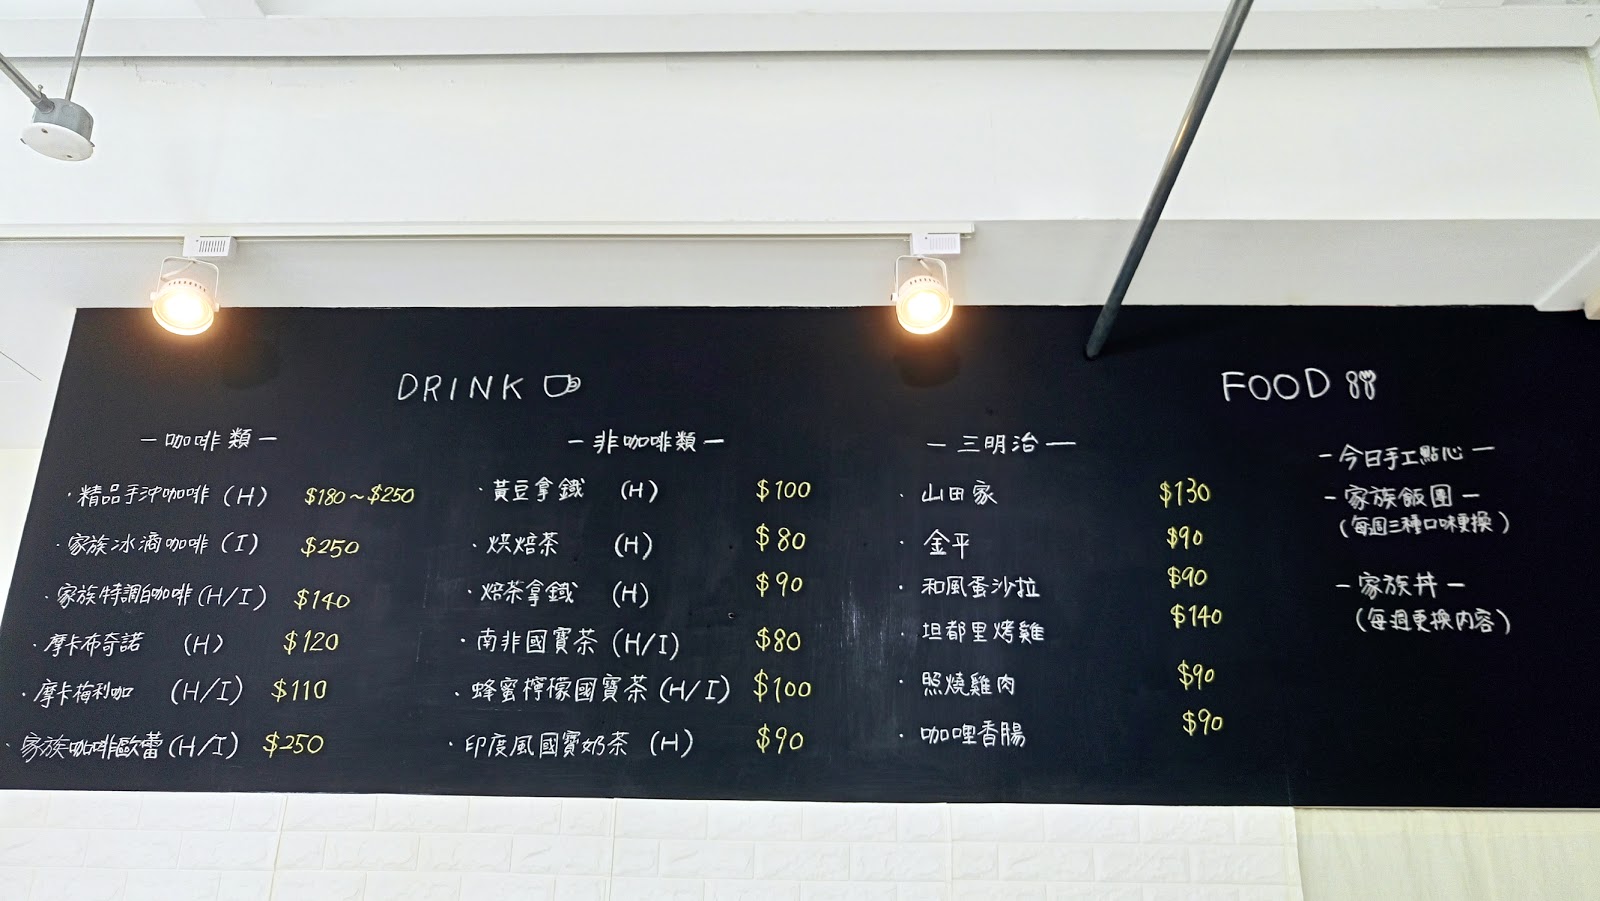 DRINK
－咖啡類－
·精品手沖咖啡(H) $180~$250
·家族冰滴咖啡(I) $250
·家族特調白咖啡(H/I) $140
·摩卡布奇諾 (H) $120
·摩卡梅利咖 (H/I) $110
·家族咖啡歐蕾(H/I) $250
－非咖啡類－
·黃豆拿鐵 (H) $100
·烘焙茶 (H) $80
·焙茶拿鐵 (H) $90
·南非國寶茶(H/I) $80
·蜂蜜檸檬國寶茶(H/I) $100
·印度風國寶奶茶 (H) $90
FOOD
－三明治－
·山田家 $130
·金平 $90
·和風蛋沙拉 $90
·坦都里烤雞 $140
·照燒雞肉 $90
·咖哩香腸 $90
－今日手工點心－
－家族飯團－
(每週三種口味更換)
－家族丼－
(每週更換內容)